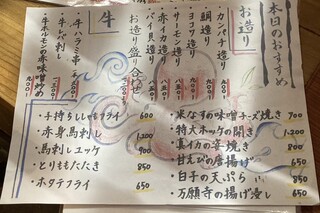 本日のおすすめ
お造り
・カンパチ造り
・鯛造り
・ヨコワ造り
・サーモン造り
・赤イカ造り
・バイ貝造り
お造り盛り合わせ
牛
・牛ハラミ串
・牛ホルモンの赤味噌炒め
・子持ちししゃもフライ 600
・赤身馬刺し 1,200
・馬刺しユッケ 900
・とりももたたき 850
・ホタテフライ 650
・米なすの味噌チーズ焼き 700
・特大ホッケの開き 1,300
・真イカの姿焼き 900
・甘えびの唐揚げ 650
・白子の天ぷら 850
・万願寺の揚げ浸し 650